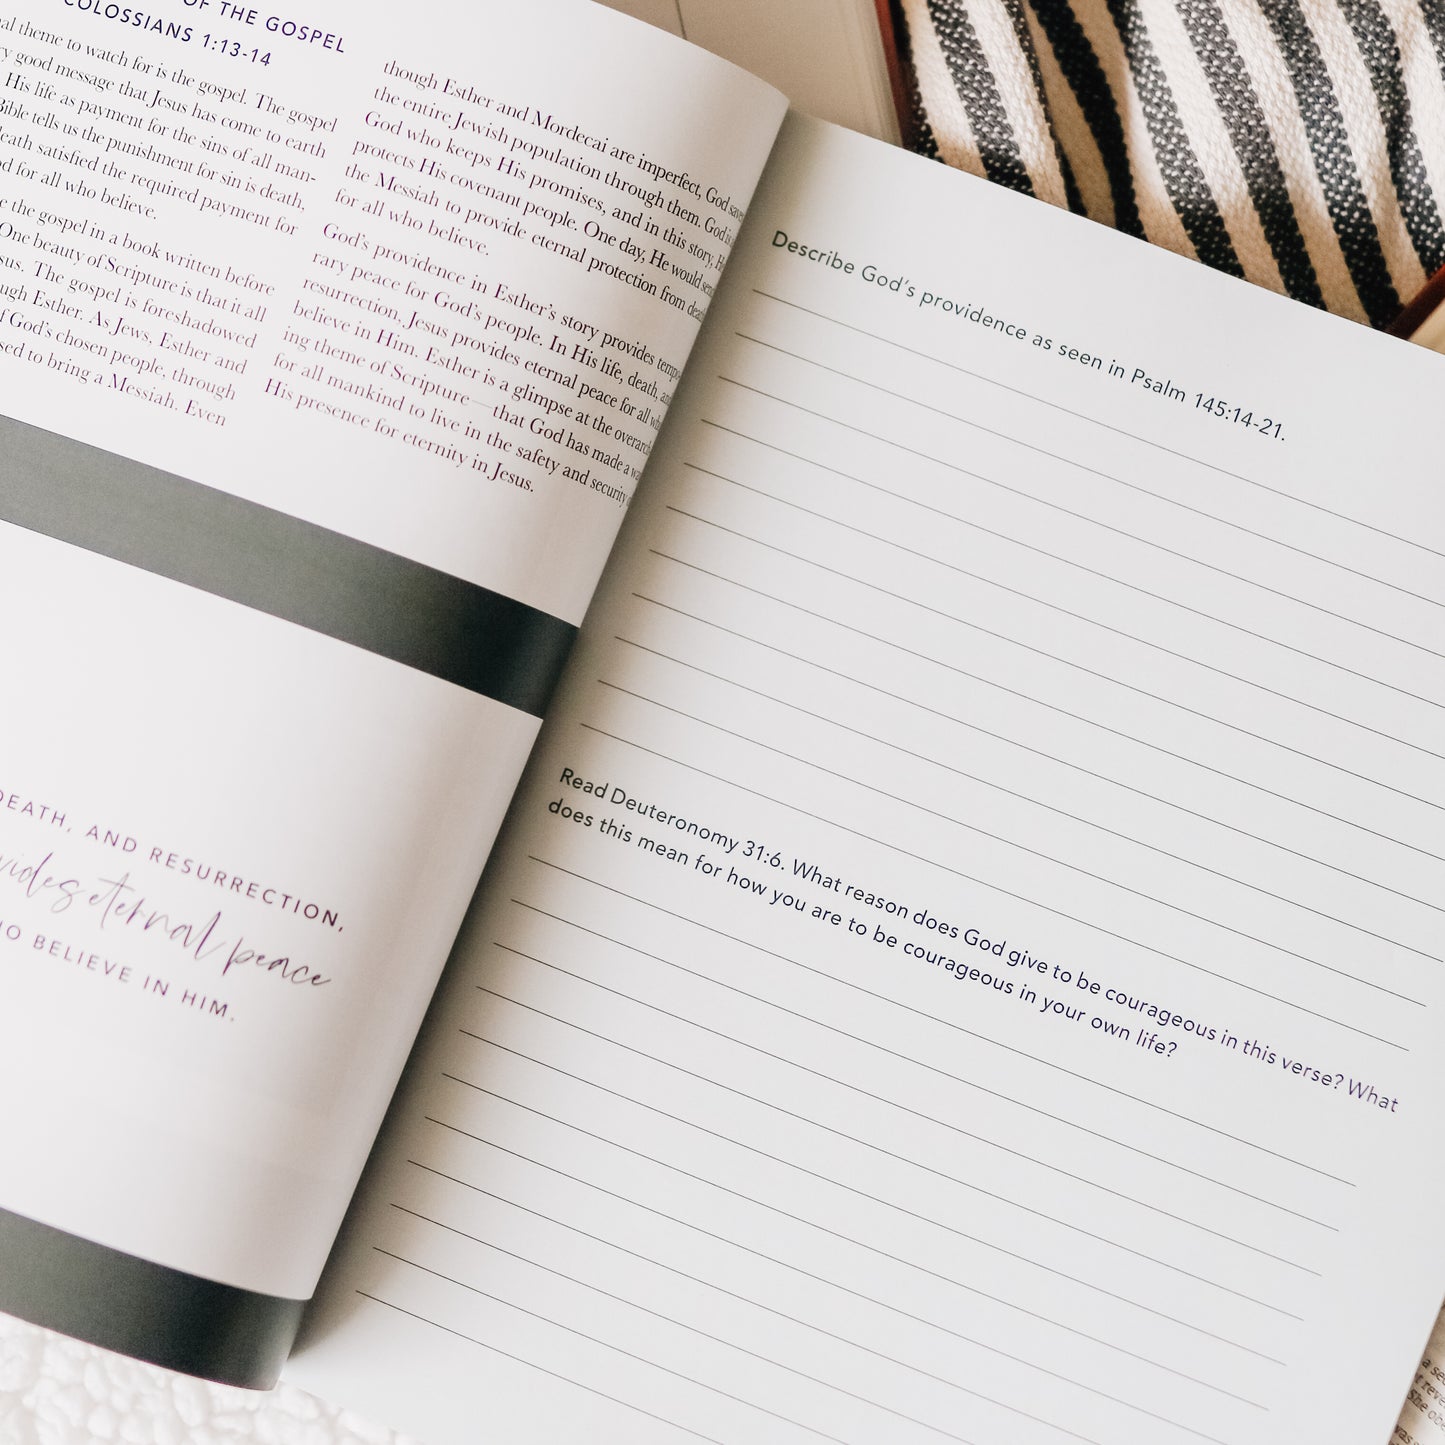 OF THE GOSPEL
COLOSSIANS 1:13-14
theme to watch for is the gospel. The gospel
good message that Jesus has come to earth
His life as payment for the sins of all man-
Bible tells us the punishment for sin is death,
death satisfied the required payment for
for all who believe.
the gospel in a book written before
One beauty of Scripture is that it all
The gospel is foreshadowed
Esther. As Jews, Esther and
of God's chosen people, through
to bring a Messiah. Even
though Esther and Mordecai are imperfect, God
the entire Jewish population through them. God
God who keeps His promises, and in this story,
protects His covenant people. One day, He would
the Messiah to provide eternal protection from
for all who believe.
God's providence in Esther's story provides tempo-
rary peace for God's people. In His life, death, and
resurrection, Jesus provides eternal peace for all
believe in Him. Esther is a glimpse at the
ing theme of Scripture—that God has made a
for all mankind to live in the safety and security
His presence for eternity in Jesus.
DEATH, AND RESURRECTION,
eternal peace
BELIEVE IN HIM.
Describe God's providence as seen in Psalm 145:14-21.
Read Deuteronomy 31:6. What reason does God give to be courageous in this verse? What
does this mean for how you are to be courageous in your own life?